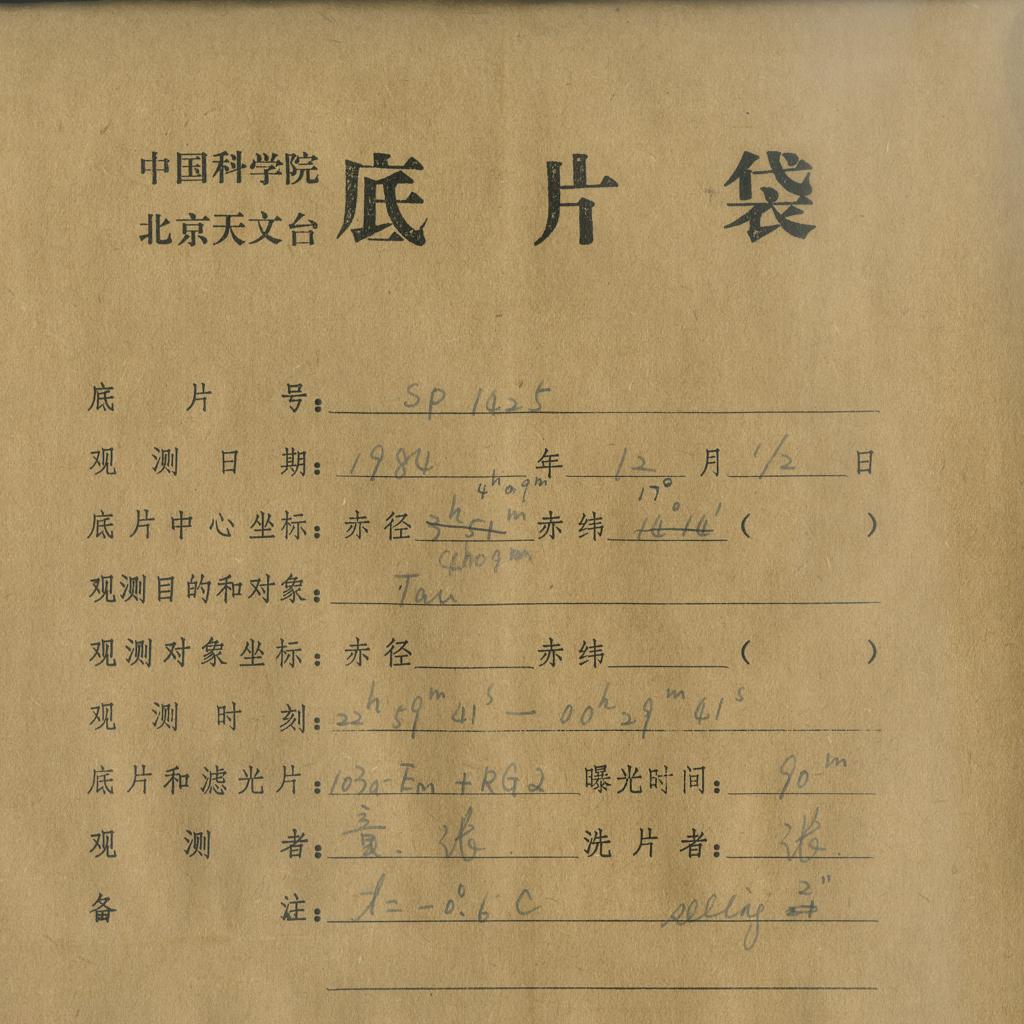 中国科学院
北京天文台
底片袋
底片号: SP 1425
观测日期: 1984 年 12 月 1/2 日
4h09m 17°
底片中心坐标: 赤径 3h51m 赤纬 14°14′ ( )
4h09m
观测目的和对象: Tau
观测对象坐标: 赤径 赤纬 ( )
观测时刻: 22h59m41s — 00h29m41s
底片和滤光片: 103a-Em + RG2 曝光时间: 90m
观测者: 童. 张. 洗片者: 张.
备注: t = -0°.6 C 2″